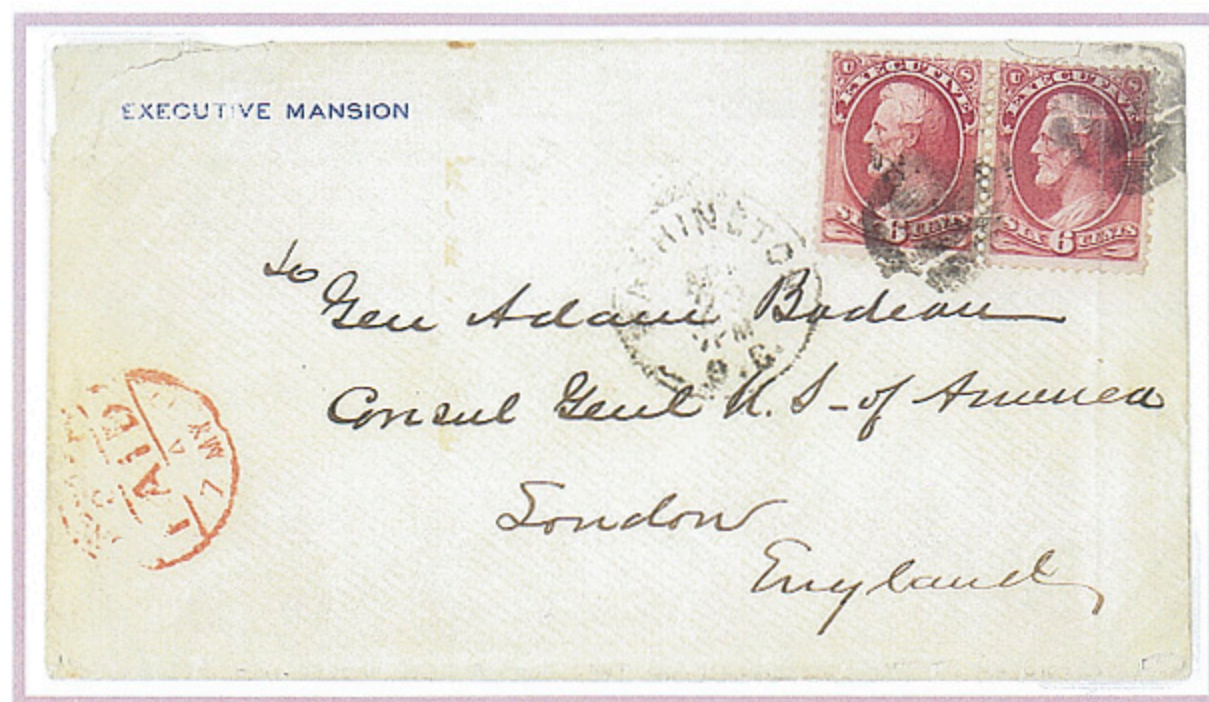 EXECUTIVE MANSION
U S
EXECUTIVE
SIX 6 CENTS
U S
EXECUTIVE
SIX 6 CENTS
WASHINGTO
7 PM
D.C.
To
Gen Adam Badeau
Consul Genl U.S. of America
London
England
PAID
7 MY